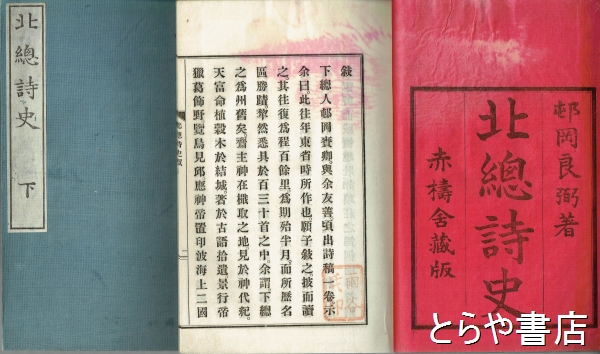 北總詩史 下
敍
下總人邨岡賚卿與余友善頃出詩稿一卷示
余曰此往年東省時所作也願子敍之披而讀
之其往復爲程百餘里爲期殆半月而所歷名
區勝蹟犂然悉具於百三十首之中余謂下總
之爲州舊矣齋主神在檝取之地見於神代紀
天富命植穀木於結城著於古語拾遺景行帝
獵葛飾野覽鳥見邱應神帝置印波海上二國
北總詩史敍
邨岡良弼著
北總詩史
赤檮舍藏版
とらや書店